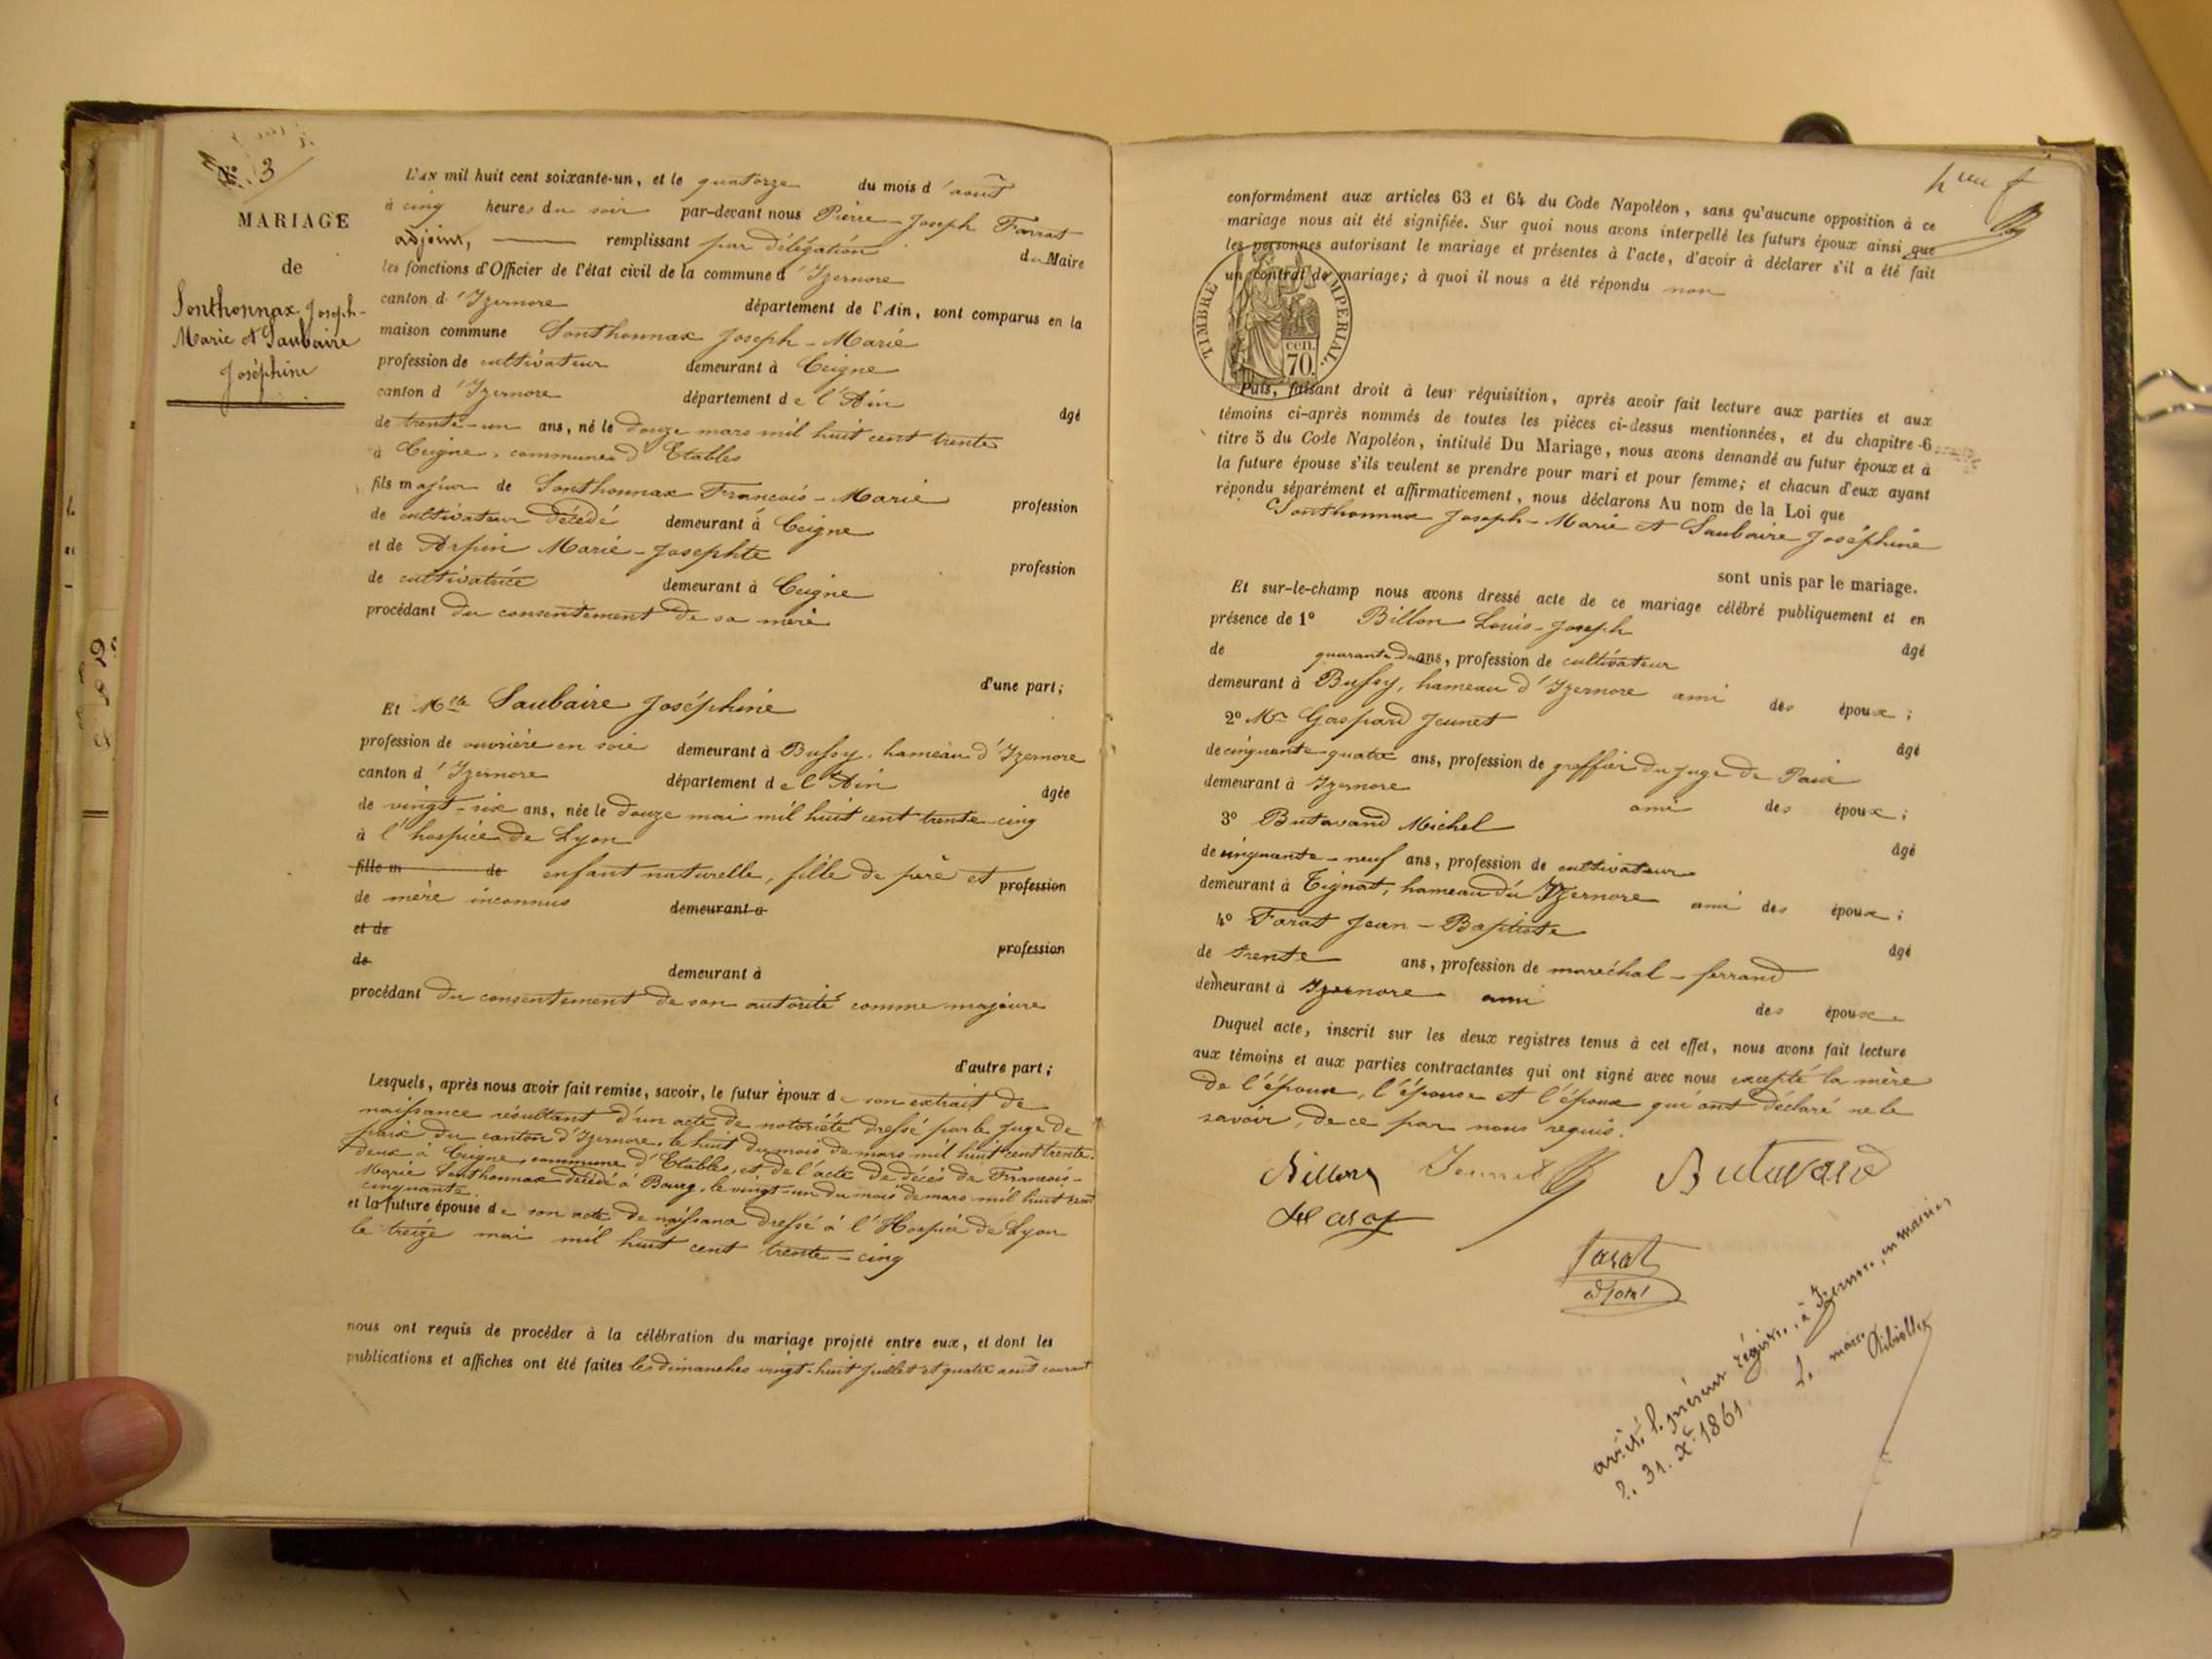 N° 3
MARIAGE
de
Sonthonnax Joseph-
Marie et Saubaire
Joséphine
L'AN mil huit cent soixante-un, et le quatorze du mois d'août
à cinq heures du soir par-devant nous Pierre-Joseph Farrat
adjoint, remplissant par délégation du Maire
les fonctions d'Officier de l'état civil de la commune d'Izernore
canton d'Izernore département de l'Ain, sont comparus en la
maison commune Sonthonnax Joseph-Marie
profession de cultivateur demeurant à Ceigne
canton d'Izernore département de l'Ain âgé
de trente-un ans, né le douze mars mil huit cent trente
à Ceigne, commune d'Etables
fils majeur de Sonthonnax François-Marie profession
de cultivateur décédé demeurant à Ceigne
et de Arpin Marie-Josephte profession
de cultivatrice demeurant à Ceigne
procédant du consentement de sa mère
d'une part;
Et Mlle Saubaire Joséphine
profession de ouvrière en soie demeurant à Bussy, hameau d'Izernore
canton d'Izernore département de l'Ain âgée
de vingt-six ans, née le douze mai mil huit cent trente-cinq
à l'hospice de Lyon
fille m de enfant naturelle, fille de père et profession
de mère inconnus demeurant à
et de
de profession
demeurant à
procédant du consentement de son autorité comme majeure
d'autre part;
Lesquels, après nous avoir fait remise, savoir, le futur époux de son extrait de
naissance résultant d'un acte de notoriété dressé par le juge de
paix du canton d'Izernore, le huit du mois de mars mil huit cent trente-
deux à Ceigne, commune d'Etables, et de l'acte de décès de François-
Marie Sonthonnax décédé à Bourg, le vingt-un du mois de mars mil huit cent
cinquante.
et la future épouse de son acte de naissance dressé à l'Hospice de Lyon
le treize mai mil huit cent trente-cinq
nous ont requis de procéder à la célébration du mariage projeté entre eux, et dont les
publications et affiches ont été faites les dimanches vingt-huit juillet et quatre août courant
conformément aux articles 63 et 64 du Code Napoléon, sans qu'aucune opposition à ce
mariage nous ait été signifiée. Sur quoi nous avons interpellé les futurs époux ainsi que
les personnes autorisant le mariage et présentes à l'acte, d'avoir à déclarer s'il a été fait
un contrat de mariage; à quoi il nous a été répondu non
TIMBRE IMPERIAL.
cen.
70.
Puis, faisant droit à leur réquisition, après avoir fait lecture aux parties et aux
témoins ci-après nommés de toutes les pièces ci-dessus mentionnées, et du chapitre 6
titre 5 du Code Napoléon, intitulé Du Mariage, nous avons demandé au futur époux et à
la future épouse s'ils veulent se prendre pour mari et pour femme; et chacun d'eux ayant
répondu séparément et affirmativement, nous déclarons Au nom de la Loi que
Sonthonnax Joseph-Marie et Saubaire Joséphine
sont unis par le mariage.
Et sur-le-champ nous avons dressé acte de ce mariage célébré publiquement et en
présence de 1° Billon Louis-Joseph âgé
de quarante-deux ans, profession de cultivateur
demeurant à Bussy, hameau d'Izernore ami des époux;
2° Mr Gaspard Jeunet âgé
de cinquante quatre ans, profession de greffier du juge de Paix
demeurant à Izernore ami des époux;
3° Butavand Michel âgé
de cinquante-neuf ans, profession de cultivateur
demeurant à Tignat, hameau du Izernore ami des époux;
4° Farat Jean-Baptiste âgé
de trente ans, profession de maréchal-ferrand
demeurant à Izernore ami des époux.
Duquel acte, inscrit sur les deux registres tenus à cet effet, nous avons fait lecture
aux témoins et aux parties contractantes qui ont signé avec nous excepté la mère
de l'époux, l'épouse et l'époux qui ont déclaré ne le
savoir, de ce par nous requis.
Billon Jeunet Butavand
Farat
adjoint
arrêté le présent régistre, à Izernore, en mairie,
le 31. X. 1861.
Le maire